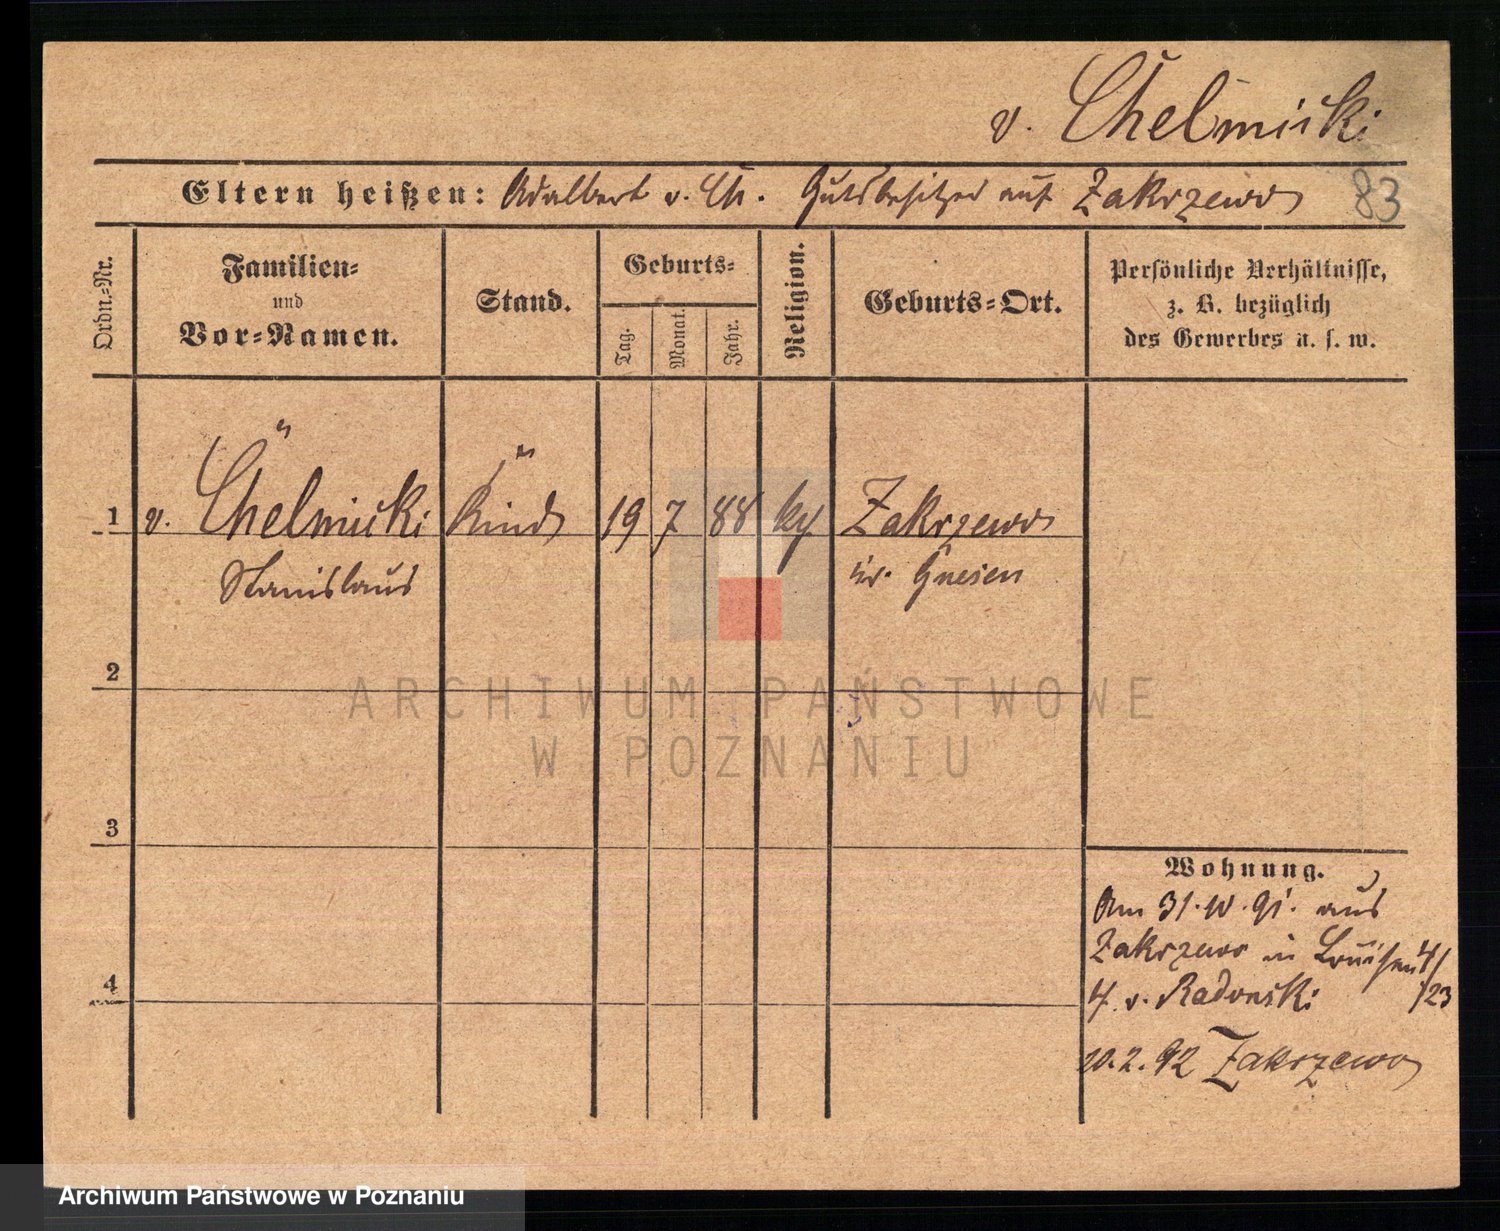 v. Chelmicki
Eltern heißen: Adalbert v. Ch. Gutsbesitzer auf Zakrzewo 83
Ordn.-Nr.
Familien-
und
Vor-Namen.
Stand.
Geburts-
Tag.
Monat.
Jahr.
Religion.
Geburts-Ort.
Persönliche Verhältnisse,
z. B. bezüglich
des Gewerbes u. s. w.
1 v. Chelmicki Kind 19 7 88 Zakrzewo
Stanislaus Gnesen
2
3
4
Wohnung.
Am 31. 10. 91. aus
Zakrzewo in Louisen
v. Radonski
10. 2. 92 Zakrzewo
ARCHIWUM PAŃSTWOWE
W POZNANIU
Archiwum Państwowe w Poznaniu